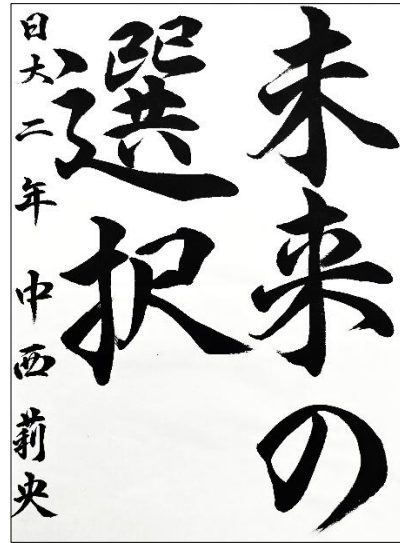 未来の
選択
日大二年 中西莉央